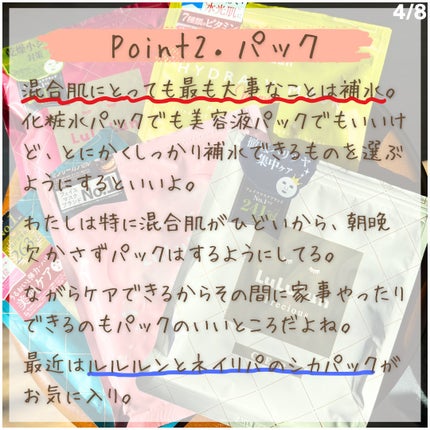 4/8
水光肌
7種類のビタミン
Point2. パック
混合肌にとっても最も大事なことは補水。
化粧水パックでも美容液パックでもいいけ
ど、とにかくしっかり補水できるものを選ぶ
ようにするといいよ。
わたしは特に混合肌がひどいから、朝晩
欠かさずパックはするようにしてる。
ながらケアできるからその間に家事やったり
できるのもパックのいいところだよね。
最近はルルルンとネイリパのシカパックが
お気に入り。